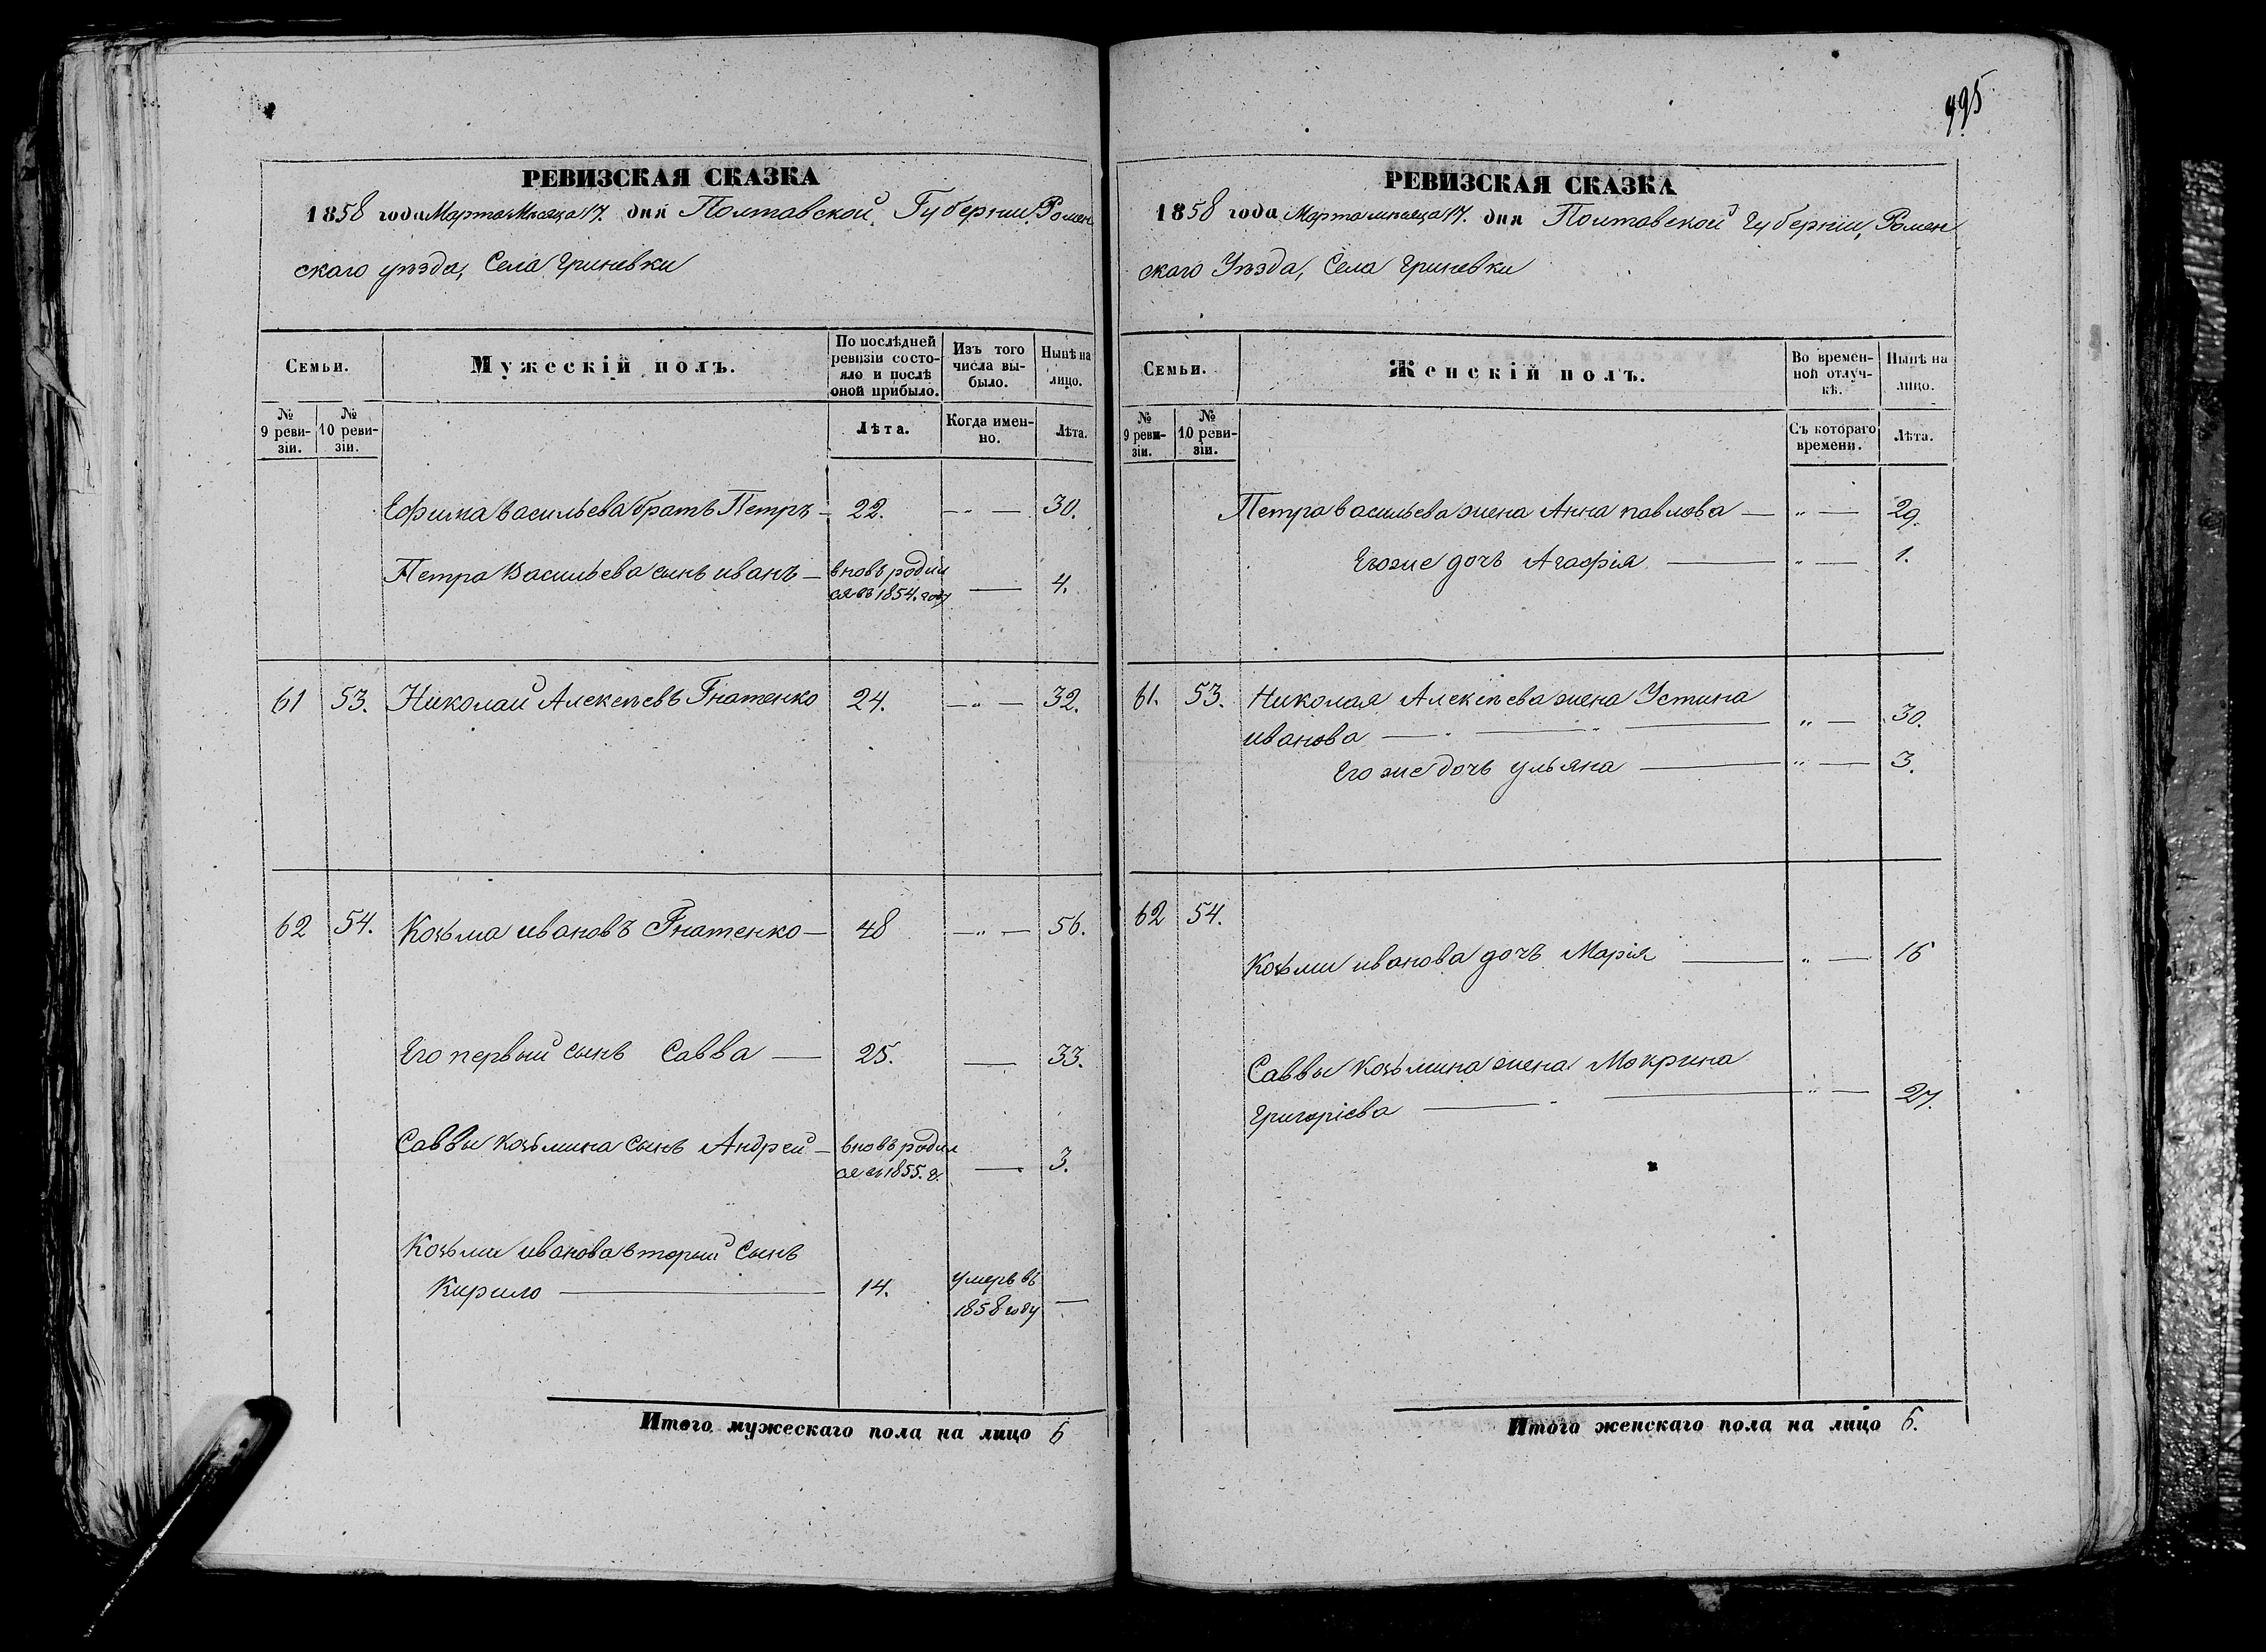 495
РЕВИЗСКАЯ СКАЗКА
1858 года Марта Месяца 17. дня Полтавской Губернии, Ромен
скаго уѣзда, Села Гриневки
Семьи.
Мужескій полъ.
По послѣдней
ревизіи состо-
яло и послѣ
оной прибыло.
Изъ того
числа вы-
было.
Нынѣ на
лицо.
№
9 реви-
зіи.
№
10 реви-
зіи.
Лѣта.
Когда имен-
но.
Лѣта.
Ефима васильева братъ Петръ — 22. — „ — 30.
Петра Васильева сынъ иванъ — вновь родил
ся въ 1854. году — 4.
61 53. Николай Алексѣевъ Гнатенко 24. — „ — 32.
62 54. Козьма ивановъ Гнатенко — 48 — „ — 56.
Его первый сынъ Савва — 25. — 33.
Саввы козьмина сынъ Андрей — вновь родил
ся въ 1855. г. — 3.
Козьми иванова вторый сынъ
Кирило — 14. умеръ въ
1858 году —
Итого мужескаго пола на лицо 6
РЕВИЗСКАЯ СКАЗКА
1858 года Марта месяца 17. дня Полтавской Губернии, Ромен
скаго Уѣзда, Села Гриневки
Семьи.
Женскій полъ.
Во времен-
ной отлуч-
кѣ.
Нынѣ на
лицо.
№
9 реви-
зіи.
№
10 реви-
зіи.
Съ котораго
времени.
Лѣта.
Петра васильева жена Анна павлова — „ — 29.
Егоже дочь Агафія — „ — 1.
61. 53. Николая Алексѣева жена Устина
иванова — „ — 30.
Его же дочь ульяна — „ — 3.
62 54.
Козьми иванова дочь Марія — „ — 16
Саввы Козьмина жена Мокрина
Григоріева — „ — 27.
Итого женскаго пола на лицо 6.